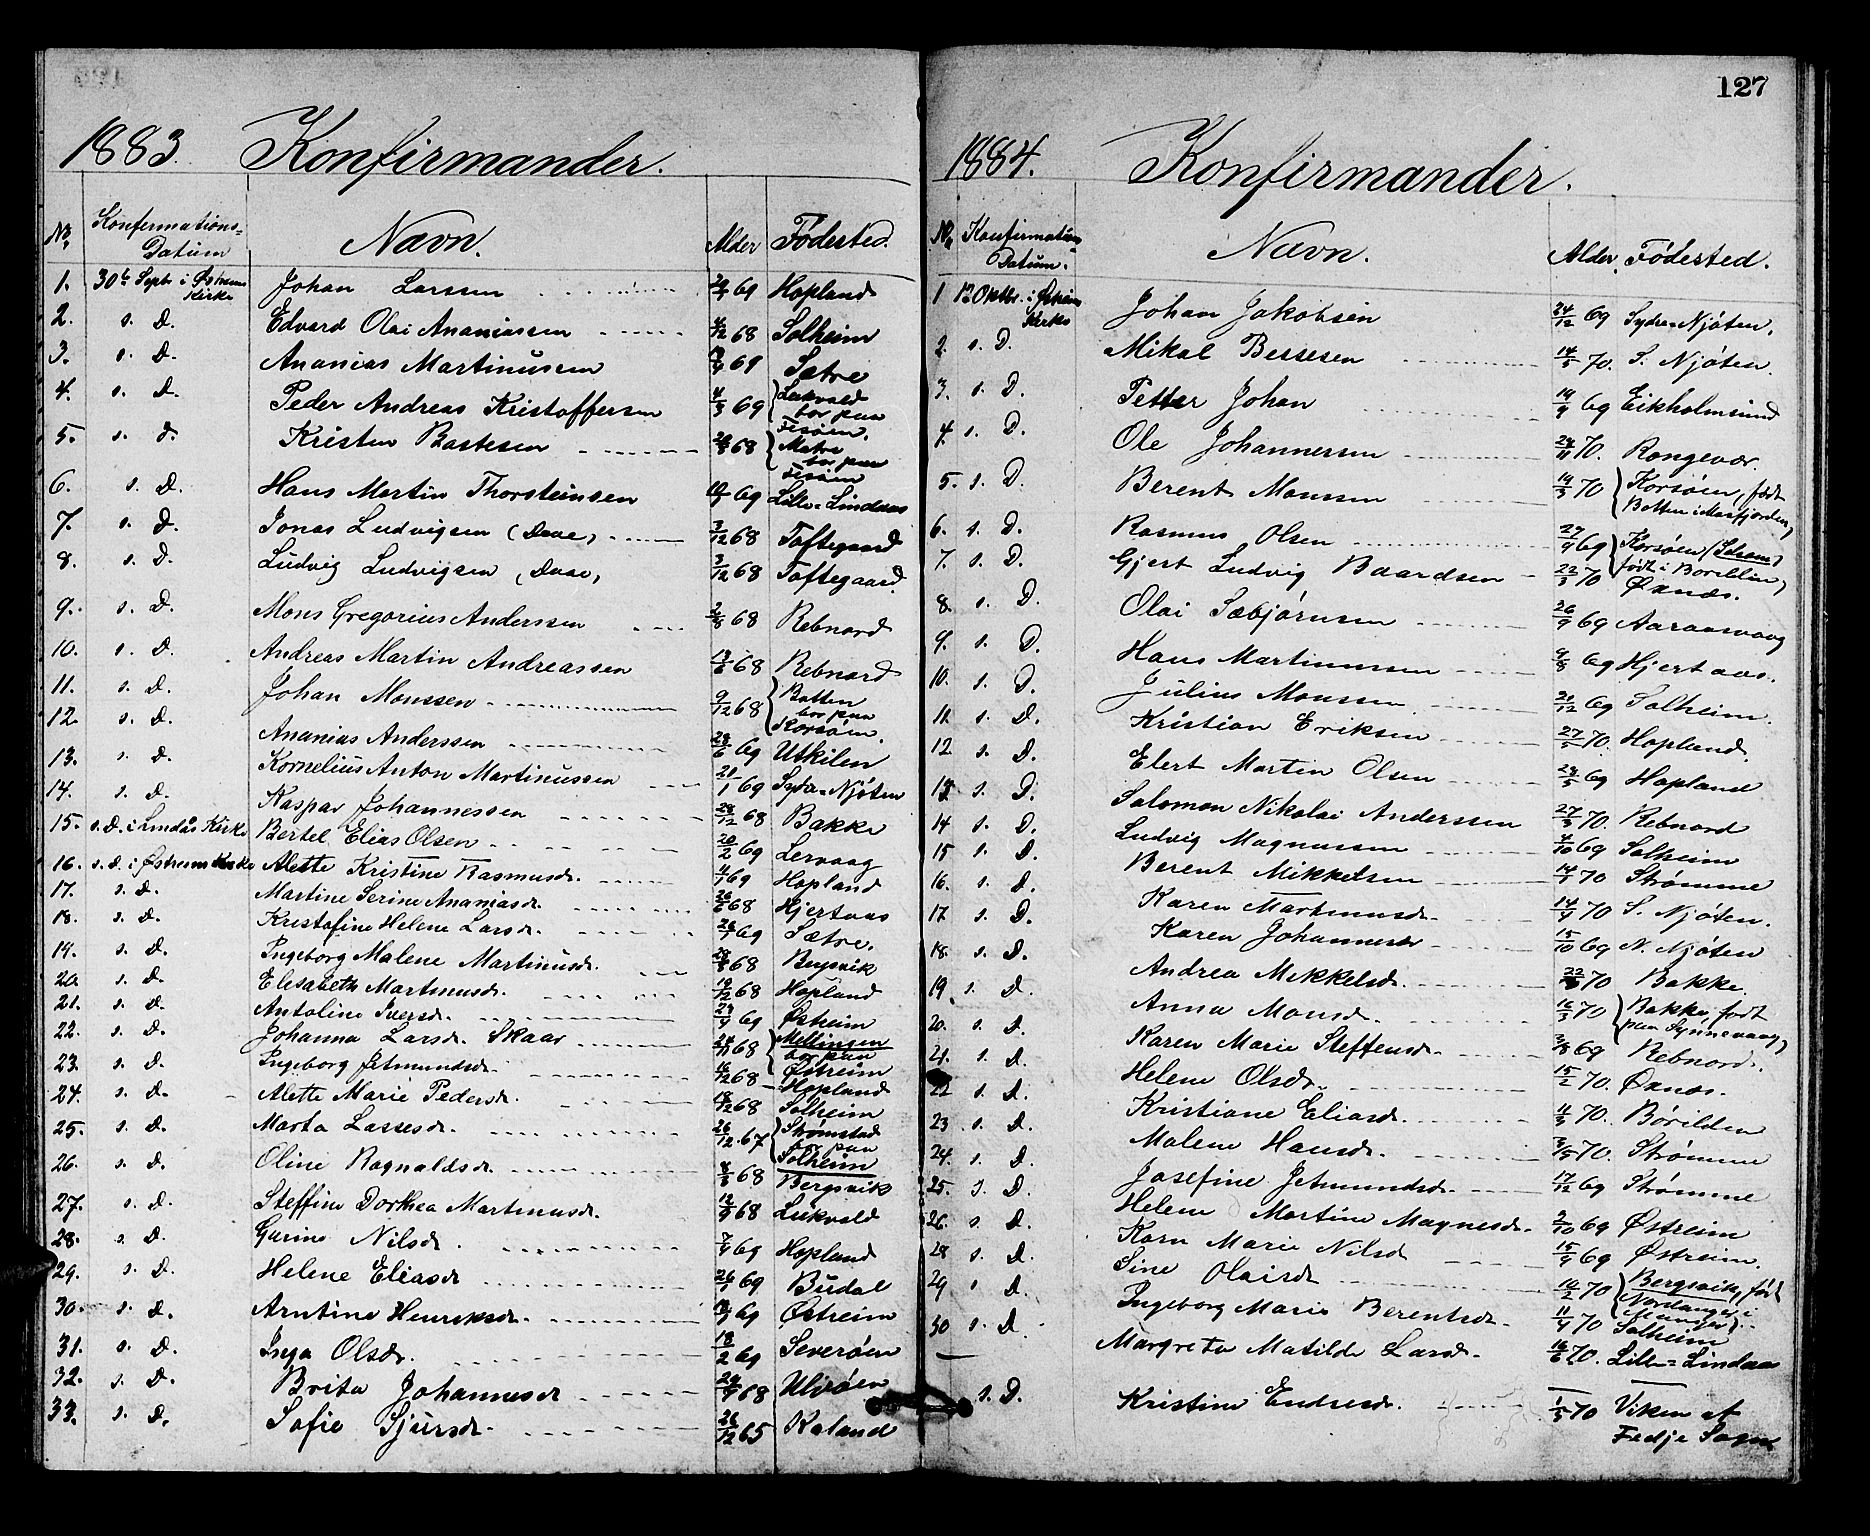 1883. Konfirmander.
No. Konfirmations- Datum Navn. Alder Fødested.
1. 30te Septr. i Østreim Kirke Johan Larssen 69 Hopland
2. s. D. Edvard Olai Ananiassen 4/12 68 Solheim
3. s. D. Ananias Martinussen 69 Sætre
4. s. D. Peder Andreas Kristoffersen 4/3 69 Lukvald bor paa Fesøen.
5. s. d. Kristen Bastesen 68 Matre bor paa Fesøen
6. s. D. Hans Martin Thorsteinsen 69 Lille-Lindaas
7. s. D. Jonas Ludvigsen (Daae) 3/12 68 Toftegaard
8. s. D. Ludvig Ludvigsen (Daae) 3/12 68 Toftegaard.
9. s. D. Mons Gregorius Anderssen 2/8 68 Rebnord
10. s. D. Andreas Martin Andreassen 68 Rebnord
11. s. D. Johan Monssen 9/12 68 Botten bor paa Korsøen.
12. s. D. Ananias Anderssen 69 Utkilen
13. s. D. Kornelius Anton Martinussen 21/1 69 Sydre-Njøten
14. s. D. Kaspar Johannessen 28/12 68 Bakke
15. s. D. i Lindås Kirke Bertel Elias Olsen 20/2 69 Lervaag
16. s. D. i Østreim Kirke Alette Kristine Rasmusdr. 4/1 69 Hopland
17. s. D. Martine Serine Ananiasdr. 26/6 68 Hjertaas
18. s. D. Kristofine Helene Larsdr. 26/1 69 Sætre.
19. s. D. Ingeborg Malene Martinusdr. 68 Bergsvik
20. s. D. Elisabeth Martinusdr. 19/12 68 Hopland
21. s. D. Antoline Iversdr. 69 Østreim
22. s. D. Johanna Larsdr. Skaar 68 Mellingen bor paa Østreim
23. s. D. Ingeborg Jetmundsdr. 16/12 68 Hopland
24. s. D. Alette Marie Pedersdr. 18/12 68 Solheim
25. s. D. Marta Lassesdr. 26/12 67 Strømstad bor paa Solheim
26. s. D. Oline Ragnaldsdr. 68 Bergsvik
27. s. D. Steffine Dorthea Martinusdr. 12/9 68 Lukvald
28. s. D. Gurine Nilsdr. 7/4 69 Hopland
29. s. D. Helene Eliasdr. 69 Budal
30. s. D. Arntine Henriksdr. 69 Østreim
31. s. D. Inga Olsdr. 18/2 69 Severøen
32. s. D. Brita Johannesdr. 68 Ulvøen
33. s. D. Sofie Sjursdr. 26/12 65 Kaland
127
1884. Konfirmander.
No. Konfirmations- Datum. Navn. Alder. Fødested.
1 12 Oktbr. i Østreim Kirke Johan Jakobsen 24/12 69 Sydre-Njøten.
2. s. D. Mikal Bessesen 14/5 70. S. Njøten.
3. s. D. Petter Johan 19/9 69 Eikholmsund
4. s. D. Ole Johannessen 70. Rongevær.
5. s. D. Berent Monssen 19/3 70 Korsøen, født Botten i Masfjorden,
6. s. D. Rasmus Olsen 27/9 69 Korsøen født i Børillen,
7. s. D. Gjert Ludvig Baardsen 22/3 70 Øxnæs.
8. s. D. Olai Sæbjørnsen 26/9 69 Aaraasvaag
9. s. D. Hans Martinussen 9/8 69 Hjertaas.
10. s. D. Julius Monssen 20/12 69 Solheim.
11. s. D. Kristian Eriksen 27/5 70. Hopland.
12. s. D. Elert Martin Olsen 69 Hopland
13. s. D. Salomon Nikolai Anderssen 27/3 70. Rebnord
14 s. D. Ludvig Magnussen 4/10 69 Solheim
15 s. D. Berent Mikkelsen 70 Strømme
16. s. D. Karen Martinusdr. 70 S. Njøten.
17. s. D. Karen Johannesdr. 15/10 69 N. Njøten
18. s. D. Andrea Mikkelsdr. 70 Bakke.
19. s. D. Anna Monsdr. 16/3 70 Bakke, født paa Synnevaag,
20. s. D. Karen Marie Steffensdr. 3/8 69 Rebnord.
21. s. D. Helene Olsdr. 15/2 70. Øxnæs.
22 s. D. Kristiane Eliasdr. 70. Børilden
23. s. D. Malene Hansdr. 3/5 70. Strømme
24. s. D. Josefine Jetmundsdr. 17/12 69 Strømme
25. s. D. Helene Martine Magnesdr. 2/10 69 Østreim
26. s. D. Karn Marie Nilsdr 15/9 69 Østreim.
28 s. D. Sine Olaisdr 70 Bergsvik, født Nordanger i Manger.
29 s. D. Ingeborg Marie Berentsdr. 11/4 70 Solheim
30 s. D. Margreta Matilde Larsdr. 16/6 70. Lille-Lindaas
s. D. Kristine Endresdr. 1/5 70 Viken af Fedje Sogn